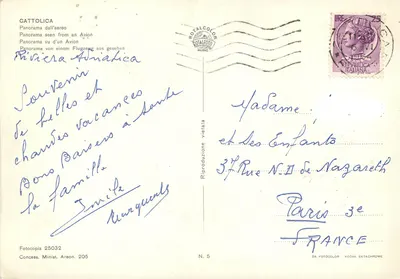 CATTOLICA
Panorama dall'aereo
Panorama seen from an Avion
Panorama vu d'un Avion
Panorama von einem Flugzeug aus gesehen
Riviera Adriatica
Souvenir
de belles et
chaudes vacances
Bons Baisers à toute
la famille
Emile
Fotocopia 25032
Concess. Minist. Aereon. 206
N. 5
Riproduzione vietata
ROTALCOLOR
25
Madame
et Ses Enfants
37 Rue N. D de Nazareth
Paris 3e
FRANCE